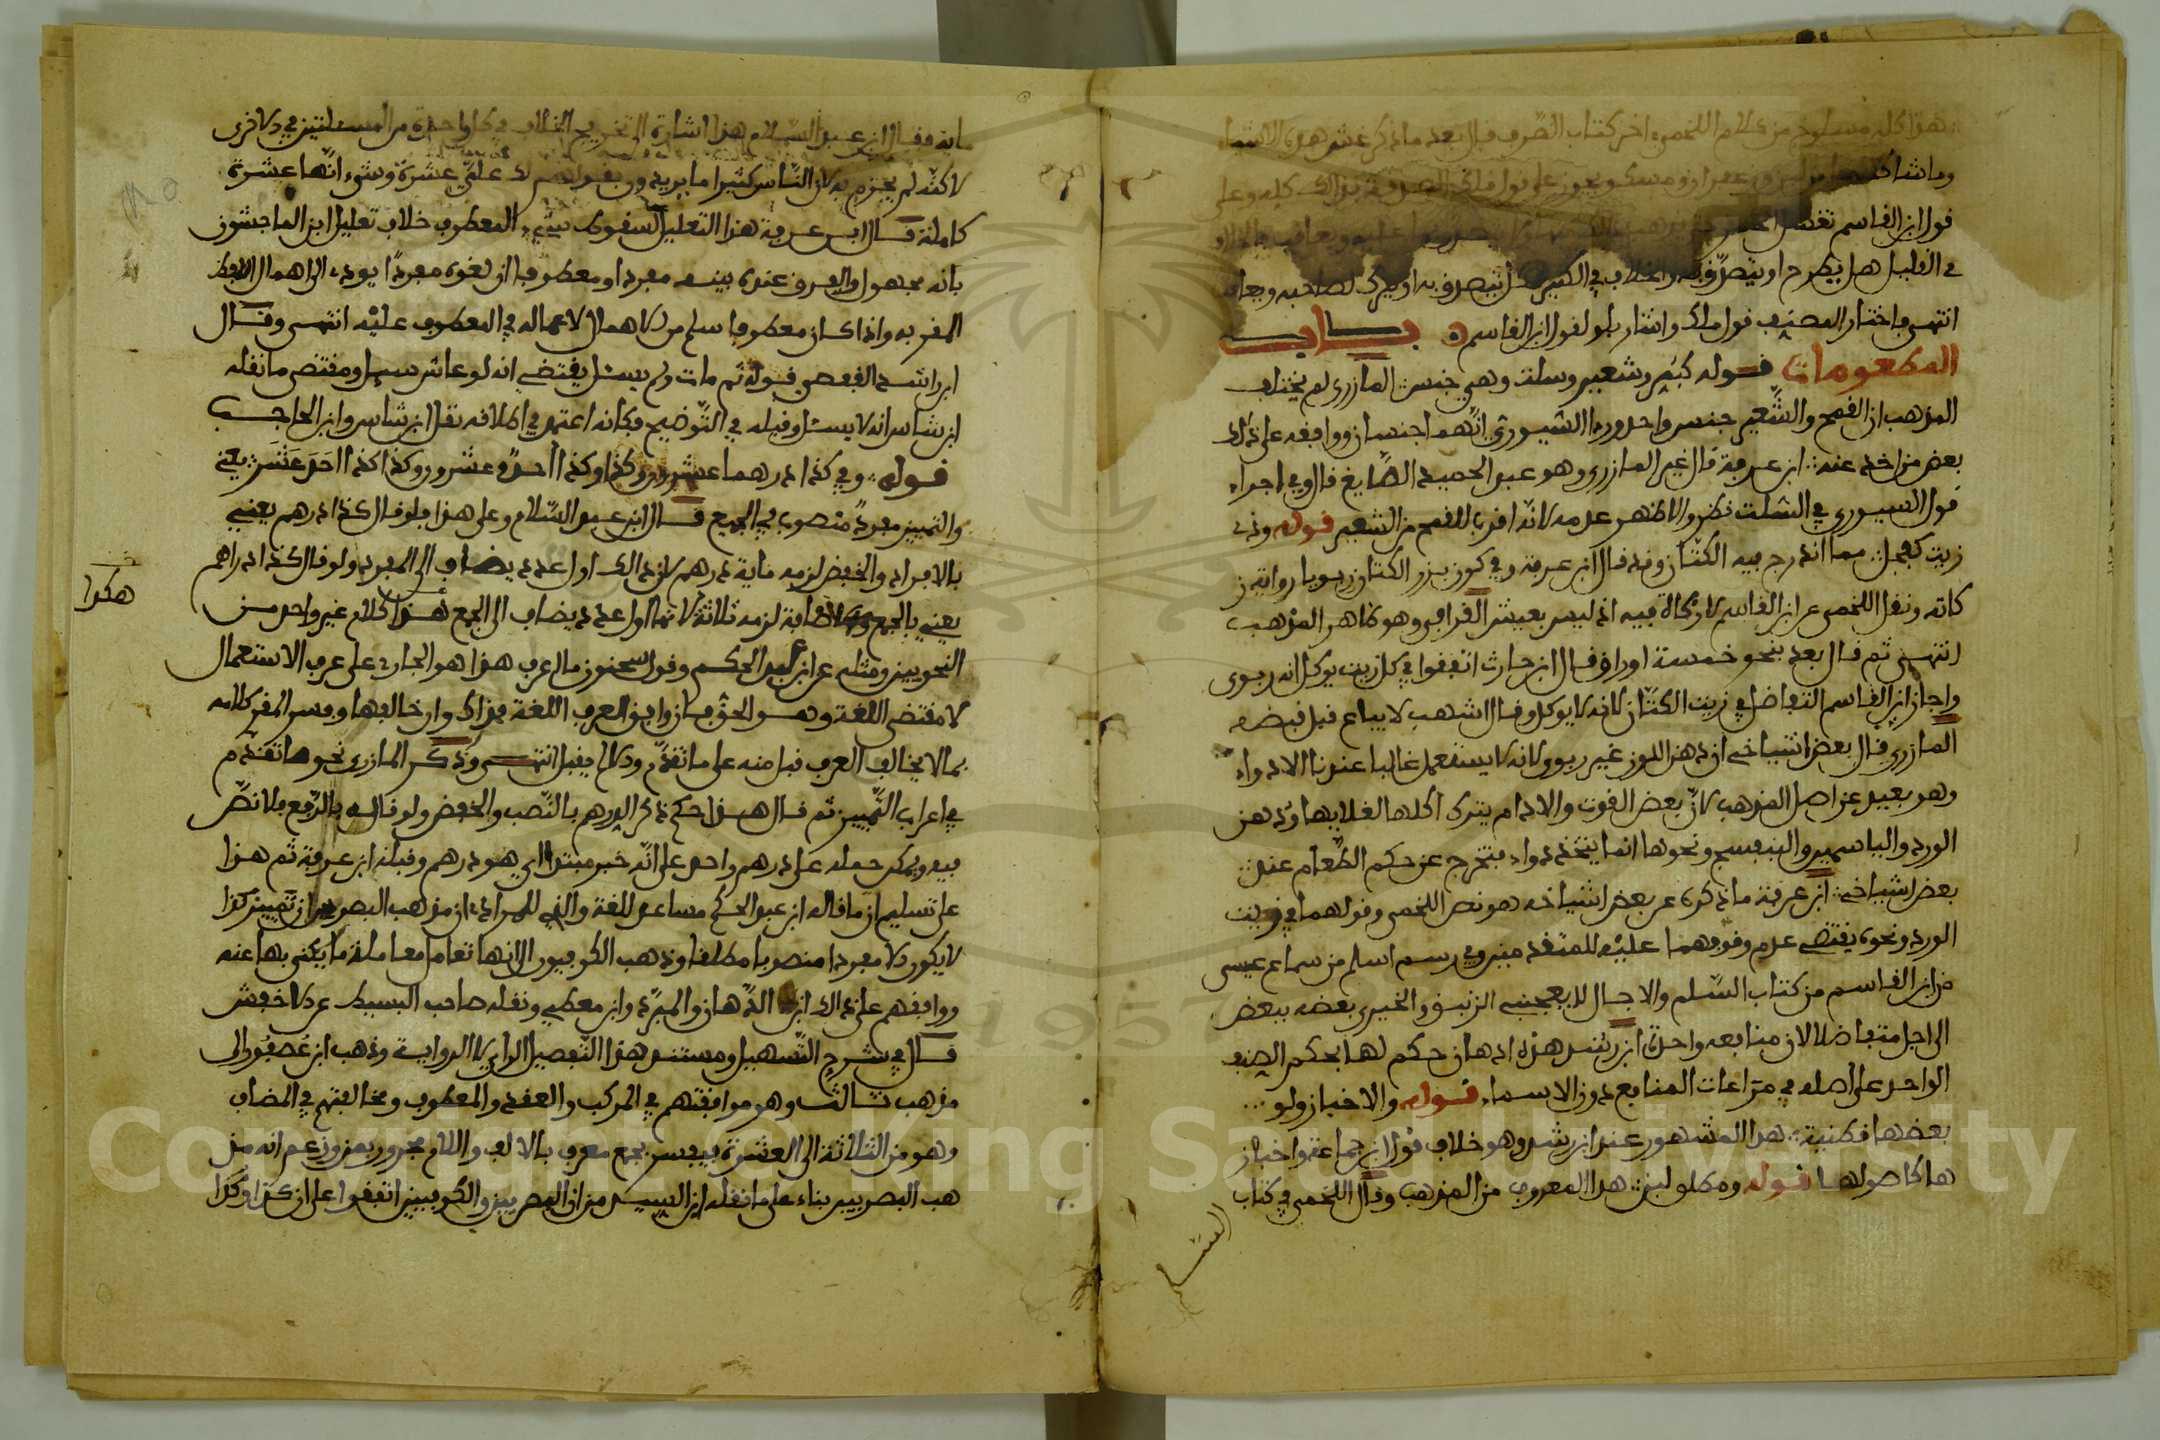 هذا كله مستلوح من كلام اللخمي اخر كتاب الصرف قال بعد ما ذكر غش هذه الاشياء
وما شاكلها
قول ابن القاسم
في القليل هل يطرح او يتصدق به والخلاف في الكثير هل يتصدق به او يترك لصاحبه ويعاقب
انتهى واختار المصنف قول مالك واشار بلو لقول ابن القاسم باب
المطعومات قوله كبر وشعير وسلت وهي جنس المازري لم يختلف
المذهب ان القمح والشعير جنس واحد ورءا السيوري انهما جنسان ووافقه على ذلك
بعض من اخذ عنه ابن عرفة قال غير المازري وهو عبد الحميد الصايغ قال وفي اجراء
قول السيوري في السلت نظر والاظهر عدمه لانه اقرب للقمح من الشعير قوله وذي
زيت كفجل مما اندرج فيه الكتان وقد قال ابن عرفة وفي كون بزر الكتان ربويا روايتان
كاته ونقل اللخمي عن ابن القاسم لا زكاة فيه اذ ليس بعيش القرافي وهو ظاهر المذهب
انتهى ثم قال بعد بنحو خمسة اوراق قال ابن حارث اتفقوا في كل زيت يوكل انه ربوي
واجاز ابن القاسم التفاضل في زيت الكتان لانه لا يوكل وقال اشهب لا يباع قبل قبضه
المازري قال بعض اشياخي ان دهن اللوز غير ربوي لانه لا يستعمل غالبا عندنا الا دواء
وهو بعيد عن اصل المذهب لان بعض القوت والادام يترك اكلها لغلايها ودهن
الورد والياسمين والبنفسج ونحوها انما يتخذ دواء فتخرج عن حكم الطعام عند
بعض اشياخي ابن عرفة ما ذكره عن بعض اشياخه هو نص اللخمي وقولهما في زيت
الورد ونحوه يقتضي عدم وقوفهما عليه للمتقدمين وفي رسم اسلم من سماع عيسى
من ابن القاسم من كتاب السلم والاجال لا يعجبني الزنبق والخيري بعضه ببعض
الى اجل متفاضلا لان منافعه واحدة ابن رشد هذه ادهان حكم لها بحكم الصنف
الواحد على اصله في مراعات المنافع دون الاسماء قوله والاخباز ولو
بعضها قطنية هذا المشهور عند ابن رشد وهو خلاف قول ابن جماعة واخباز
ها كاصولها قوله ومطلق لبن هذا المعروف من المذهب وقال اللخمي في كتاب
السلم
ماية فقال ابن عبد السلام هذا اشارة الى تخريج الخلاف في كل واحدة من المسئلتين في الاخرى
لاكنه لم يجزم به لان الناس كثيرا ما يريدون بقولهم له علي عشرة وشيء انها عشرة
كاملة قال ابن عرفة هذا التعليل لسقوط شيء المعطوف خلاف تعليل ابن الماجشون
بانه مجهول والفرق عنده بينه مفردا ومعطوفا ان لغوه مفردا يودي الى اهمال اللفظ
المقر به واذا كان معطوفا سلم من الاهمال لاعماله في المعطوف عليه انتهى وقال
ابن راشد القفصي قوله ثم مات ولم يسئل يقتضي انه لو عاش سيل ومقتضى ما نقله
ابن شاس انه لا يسئل وقبله في التوضيح فكانه اعتمد في اطلاقه نقل ابن شاس وابن الحاجب
قوله وفي كذا درهما عشرون وكذا وكذا احد وعشرون وكذا كذا احد عشر يعني
والتمييز مفرد منصوب في الجميع قال ابن عبد السلام وعلى هذا فلو قال كذا درهم يعني
بالافراد والخفض لزمه ماية درهم لان ذلك اول عدد يضاف الى المفرد ولو قال كذا دراهم
يعني بالجمع والاضافة لزمه ثلاثة لانها اول عدد يضاف الى الجمع هذا كلام غير واحد من
هكذا
النحويين ومثله عن ابن عبد الحكم وقول سحنون ما اعرف هذا هو الجاري على عرف الاستعمال
لا مقتضى اللغة وهو الحق فان وافق العرف اللغة فذاك وان خالفها وفسر المقر كلامه
بما لا يخالف العرف قبل منه على ما تقدم والا لم يقبل انتهى وذكر المازري نحو ما تقدم
في اعراب التمييز ثم قال هذا حكم ذكر الدرهم بالنصب والخفض ولو قاله بالرفع فلا نص
فيه ويمكن حمله على درهم واحد على انه خبر مبتدا اي هو درهم وقبله ابن عرفة ثم هذا
على تسليم ان ما قاله ابن عبد الحكم مساعد للغة والذي للمرادي ان مذهب البصريين ان تمييز كذا
لا يكون الا مفردا منصوبا مطلقا وذهب الكوفيون الى انها تعامل معاملة ما يكنى بها عنه
ووافقهم على ذلك ابن الدهان والمبرد وابن معطي ونقله صاحب البسيط عن الاخفش
قال في شرح التسهيل ومستند هذا التفصيل الراي لا الرواية وذهب ابن عصفور الى
مذهب ثالث وهو موافقتهم في المركب والعقد والمعطوف ومخالفتهم في المضاف
وهو من الثلاثة الى العشرة فيفسر بجمع معرف بالالف واللام مجرور بمن وزعم انه مذ
هب البصريين بناء على ما نقله ابن السيد من ان البصريين والكوفيين اتفقوا على ان كذا وكذا
1957
Copyright © King Saud University